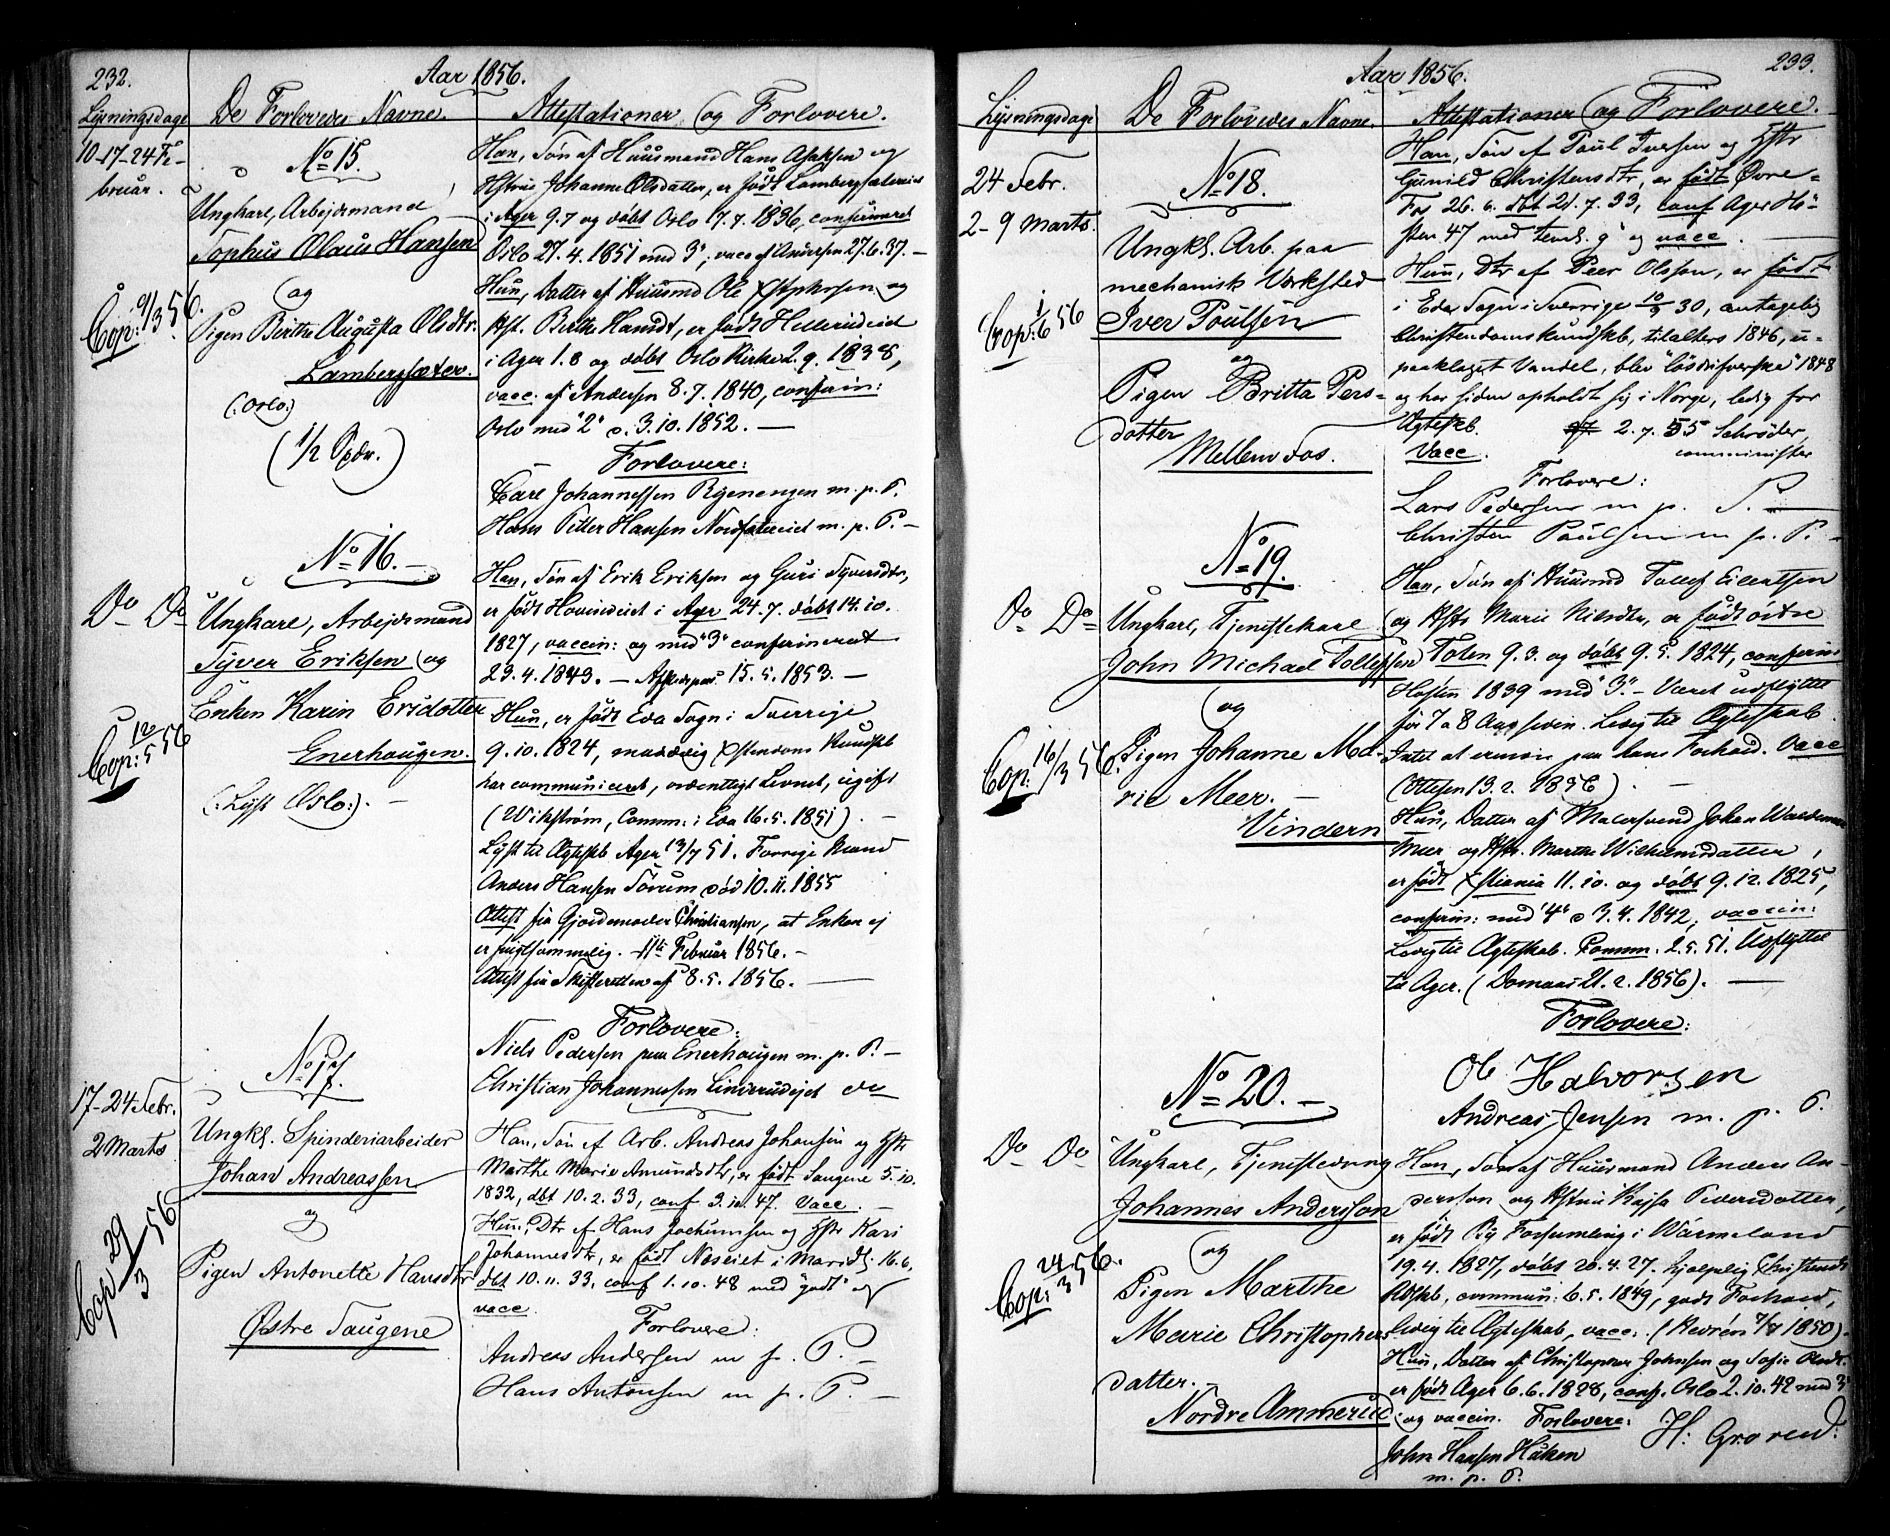 232.
Aar 1856.
Lysningsdage
De Forlovedes Navne.
Attestationer og Forlovere.
10-17-24 Fe-
bruar.
No 15.
Ungkarl, Arbejdsmand
Tophus Olaus Hansen
og
Pigen Berthe Augusta Olsdtr.
Lambergsæter.
(: Oslo:)
(1/2 Spdr.)
Cop: 9/3 56.
Han, Søn af Huusmand Hans Isaksen og
Hstru Johanne Olsdatter, er født Lambergsætereiet
i Ager 9.7 og døbt Oslo 17.7.1836, confirmeret
Oslo 27.4.1851 med 3", vacc af Andersen 27.6.37. —
Hun, Datter af Huusmd Ole Xstophersen og
Hst. Berthe Hansdt, er født Hellerudeiet
i Ager 1.8 og døbt Oslo Kirke 2.9.1838,
vacc. af Andersen 8.7.1840, confirm:
Oslo med "2" d. 3.10.1852. —
Forlovere:
Carl Johannessen Ryenengen m.p.P.
Hans Petter Hansen Nordsætereiet m.p.P. —
No 16. —
Do Do
Ungkarl, Arbejdsmand
Syver Eriksen og
Enken Karin Ersdotter
Enerhaugen.
(: Lyst Oslo:). —
Cop: 12/5 56
Han, Søn af Erik Eriksen og Guri Syversdtr,
er født Hovindeiet i Ager 24.7. døbt 14.10.
1827, vaccin: og med "3" confirmeret
23.4.1843. — Afskedspas. 15.5.1853. —
Hun, er født Eda Sogn i Sverrige
9.10.1824, maadelig Xstendoms Kundskb
har communiceret, ordentligt Levnet, ugift
(Wikström, Comm: i Eda 16.5.1851). —
Lyst til Ægteskb Ager 13/7 51. Forrige Mand
Anders Hansen Sørum død 10.11.1855
Attest fra Gjordemoder Christiansen, at Enken ej
er frugtsommelig. 11te Februar 1856. —
Attest fra Skifteretten af 8.5.1856. —
Forlovere:
Niels Pedersen paa Enerhaugen m.p.P. —
Christian Johannessen Linderudejet do
No 17.
17-24 Febr.
2 Marts
Ungkl. Spinderiarbeider
Johan Andreassen
og
Pigen Antonette Hansdtr
Østre Saugene
Cop 29/3 56
Han, Søn af Arb. Andreas Johansen og Hstr
Marthe Marie Amundsdtr, er født Saugene 5.10.
1832, dbt 10.2.33, conf 3.10.47. Vacc. —
Hun, Dtr af Hans Jochumsen og Hstr Kari
Johannesdtr, er født Neseiet i Maridl. 16.6,
dbt 10.11.33, conf 1.10.48 med "godt" og
vacc.
Forlovere:
Andreas Andersen m.p.P. —
Hans Antonsen m.p.P. —
233.
Aar 1856.
Lysningsdage
De Forlovedes Navne.
Attestationer og Forlovere.
24 Febr.
2-9 Marts.
No 18.
Ungkl. Arb. paa
mechanisk Værksted
Iver Poulsen
og
Pigen Britta Pers-
datter
Mellem Fos.
Cop: 1/6 56
Han, Søn af Poul Iversen og Hstr
Gunild Christensdtr, er født Øvre-
Fos 26.6. dbt 21.7.33, conf Ager Hö-
sten 47 med tend. g" og vacc. —
Hun, Dtr af Peer Olsson, er født
i Eda Sogn i Sverrige 10/3 30, antagelig
Christendomskundskb, tilalters 1846, u-
paaklaget Vandel, blev "lösdrifverska" 1848
og har siden opholdt sig i Norge, ledig for
Ægteskb. 2.7.55 Schrøder,
Vacc. comminister
Forlovere:
Lars Pedersen m.p.P. —
Christen Poulsen m.p.P. —
No 19.
Do Do
Ungkarl, Tjenestekarl
John Michael Tollefsen
og
Pigen Johanne Ma-
rie Meer. —
Vindern
Cop: 16/3 56.
Han, Søn af Huusmd Tollef Eilertsen
og Hstr Marie Nilsdtr, er født østre
Toten 9.3. og døbt 9.5.1824, confirm
Høsten 1839 med "3". — Været udflyttet
for 7 a 8 Aar siden. Ledig til Ægteskab.
Intet at erindre paa hans Forhold. Vacc
(Ottesen 13.2.1856). —
Hun, Datter af Malersvend Johan Waldemar
Meer og Hstr. Marthe Wilhelmsdatter,
er født Xstiania 11.10. og døbt 9.12.1825,
confirm: med "4" d 3.4.1842, vaccin:
Ledig til Ægteskab. Comm. 2.5.51. Udflyttet
til Ager. (Domaas 21.2.1856). —
Forlovere:
Ol Halvorsen
Andreas Jensen m.p.P.
No 20. —
Do Do
Ungkarl, Tjenestedreng
Johannes Andersson
og
Pigen Marthe
Marie Christophers-
datter. —
Nordre Ammerud
Cop: 24/3 56.
Han, Søn af Huusmand Anders An-
dersson og Hstru Kajsa Petersdatter,
er født By Forsamling i Wärmeland
19.4.1827, døbt 20.4.27. hjælpelig Christends
Kdskb, commun: 6.5.1849, godt Forhold,
ledig til Ægteskab, vacc. (Kevrén 1850).
Hun, Datter af Christopher Johnsen og Sofie Olsdt.
er født Ager 6.6.1828, conf. Oslo 2.10.42 med 3
og vaccin. Forlovere:
John Hansen Haken
m.p.P.
H: Grorud: